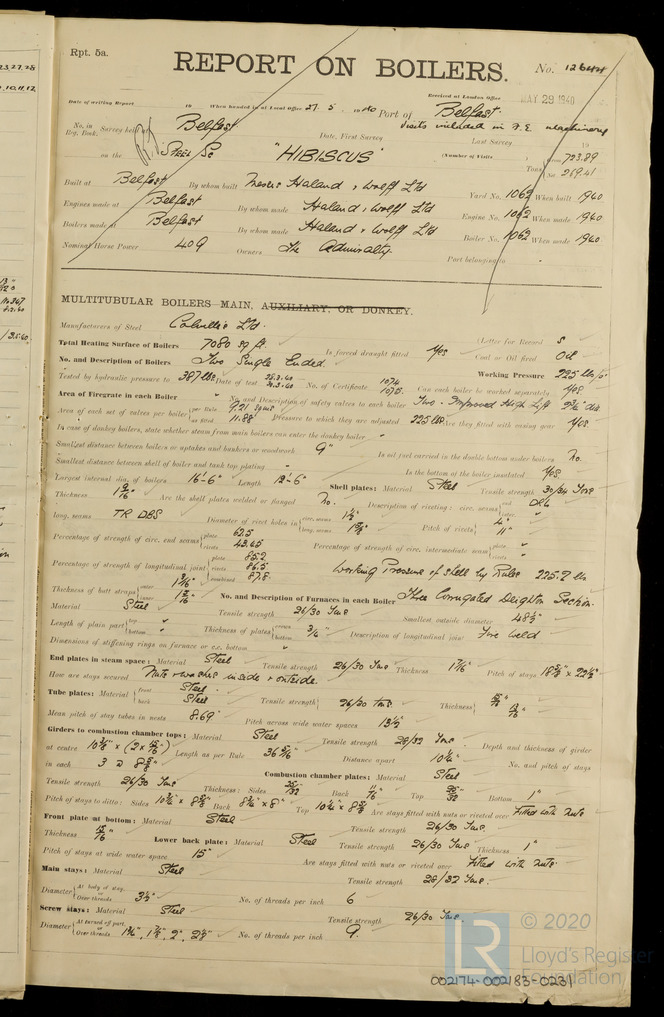 Rpt. 5a.
REPORT ON BOILERS.
No. 12644
Date of writing Report 19 When handed in at Local Office 27.5. 1940 Port of Belfast
Received at London Office MAY 29 1940
No. in Reg. Book. Survey held Belfast Date, First Survey Last Survey 19
Visits included in F.E. machinery
on the Steel Sc "HIBISCUS" (Number of Visits) Tons Gross 723.89 Net 269.41
Built at Belfast By whom built Messrs Haland & Wolff Ltd Yard No. 1062 When built 1940
Engines made at Belfast By whom made Haland & Wolff Ltd Engine No. 1062 When made 1940
Boilers made at Belfast By whom made Haland & Wolff Ltd Boiler No. 1062 When made 1940
Nominal Horse Power 409 Owners The Admiralty Port belonging to
MULTITUBULAR BOILERS MAIN, AUXILIARY, OR DONKEY.
Manufacturers of Steel Colville's Ltd. (Letter for Record S
Total Heating Surface of Boilers 7080 sq ft. Is forced draught fitted Yes Coal or Oil fired Oil
No. and Description of Boilers Two Single Ended. Working Pressure 225 lbs/□"
Tested by hydraulic pressure to 387 lbs Date of test No. of Certificate 1074 1075. Can each boiler be worked separately Yes.
Area of Firegrate in each Boiler " No. and Description of safety valves to each boiler Two - Improved High Lift 2¾ dia.
Area of each set of valves per boiler {per Rule 9.21 sq ins as fitted 11.88" Pressure to which they are adjusted 225 lbs. Are they fitted with easing gear Yes
In case of donkey boilers, state whether steam from main boilers can enter the donkey boiler "
Smallest distance between boilers or uptakes and bunkers or woodwork 9" Is oil fuel carried in the double bottom under boilers No.
Smallest distance between shell of boiler and tank top plating " Is the bottom of the boiler insulated Yes
Largest internal dia. of boilers 16'-6" Length 12'-6" Shell plates: Material Steel Tensile strength 30/34 Tons
Thickness Are the shell plates welded or flanged No. Description of riveting: circ. seams {end DR inter. "
long. seams TR DBS Diameter of rivet holes in {circ. seams long. seams Pitch of rivets { 4" 11"
Percentage of strength of circ. end seams {plate 62.5 rivets 43.45 Percentage of strength of circ. intermediate seam {plate " rivets "
Percentage of strength of longitudinal joint {plate 85.2 rivets 86.5 combined 87.8 Working Pressure of shell by Rules 225.2 lbs
Thickness of butt straps {outer 1 3/16" inner 1 3/16" No. and Description of Furnaces in each Boiler Three Corrugated Deighton Section.
Material Steel Tensile strength 26/30 Tons Smallest outside diameter 48½"
Length of plain part {top " bottom " Thickness of plates {crown bottom ¾" Description of longitudinal joint Fire Weld
Dimensions of stiffening rings on furnace or c.c. bottom "
End plates in steam space: Material Steel Tensile strength 26/30 Tons Thickness 1 7/16" Pitch of stays
How are stays secured Nuts & washers inside & outside.
Tube plates: Material {front Steel back Steel Tensile strength { 26/30 tons Thickness {
Mean pitch of stay tubes in nests 8.69" Pitch across wide water spaces 13½"
Girders to combustion chamber tops: Material Steel Tensile strength 28/32 Tons. Depth and thickness of girder
at centre Length as per Rule Distance apart 10¼" No. and pitch of stays
in each Combustion chamber plates: Material Steel
Tensile strength 26/30 Tons Thickness: Sides Back Top Bottom 1"
Pitch of stays to ditto: Sides Back Top Are stays fitted with nuts or riveted over Fitted with nuts
Front plate at bottom: Material Steel Tensile strength 26/30 Tons.
Thickness Lower back plate: Material Steel Tensile strength 26/30 Tons Thickness 1"
Pitch of stays at wide water space 15" Are stays fitted with nuts or riveted over Fitted with nuts.
Main stays: Material Steel Tensile strength 28/32 Tons.
Diameter {At body of stay, or Over threads 3½" No. of threads per inch 6
Screw stays: Material Steel Tensile strength 26/30 Tons.
Diameter {At turned off part, or Over threads No. of threads per inch 9.
© 2020
LR
Lloyd's Register
Foundation
002174-002183-0231